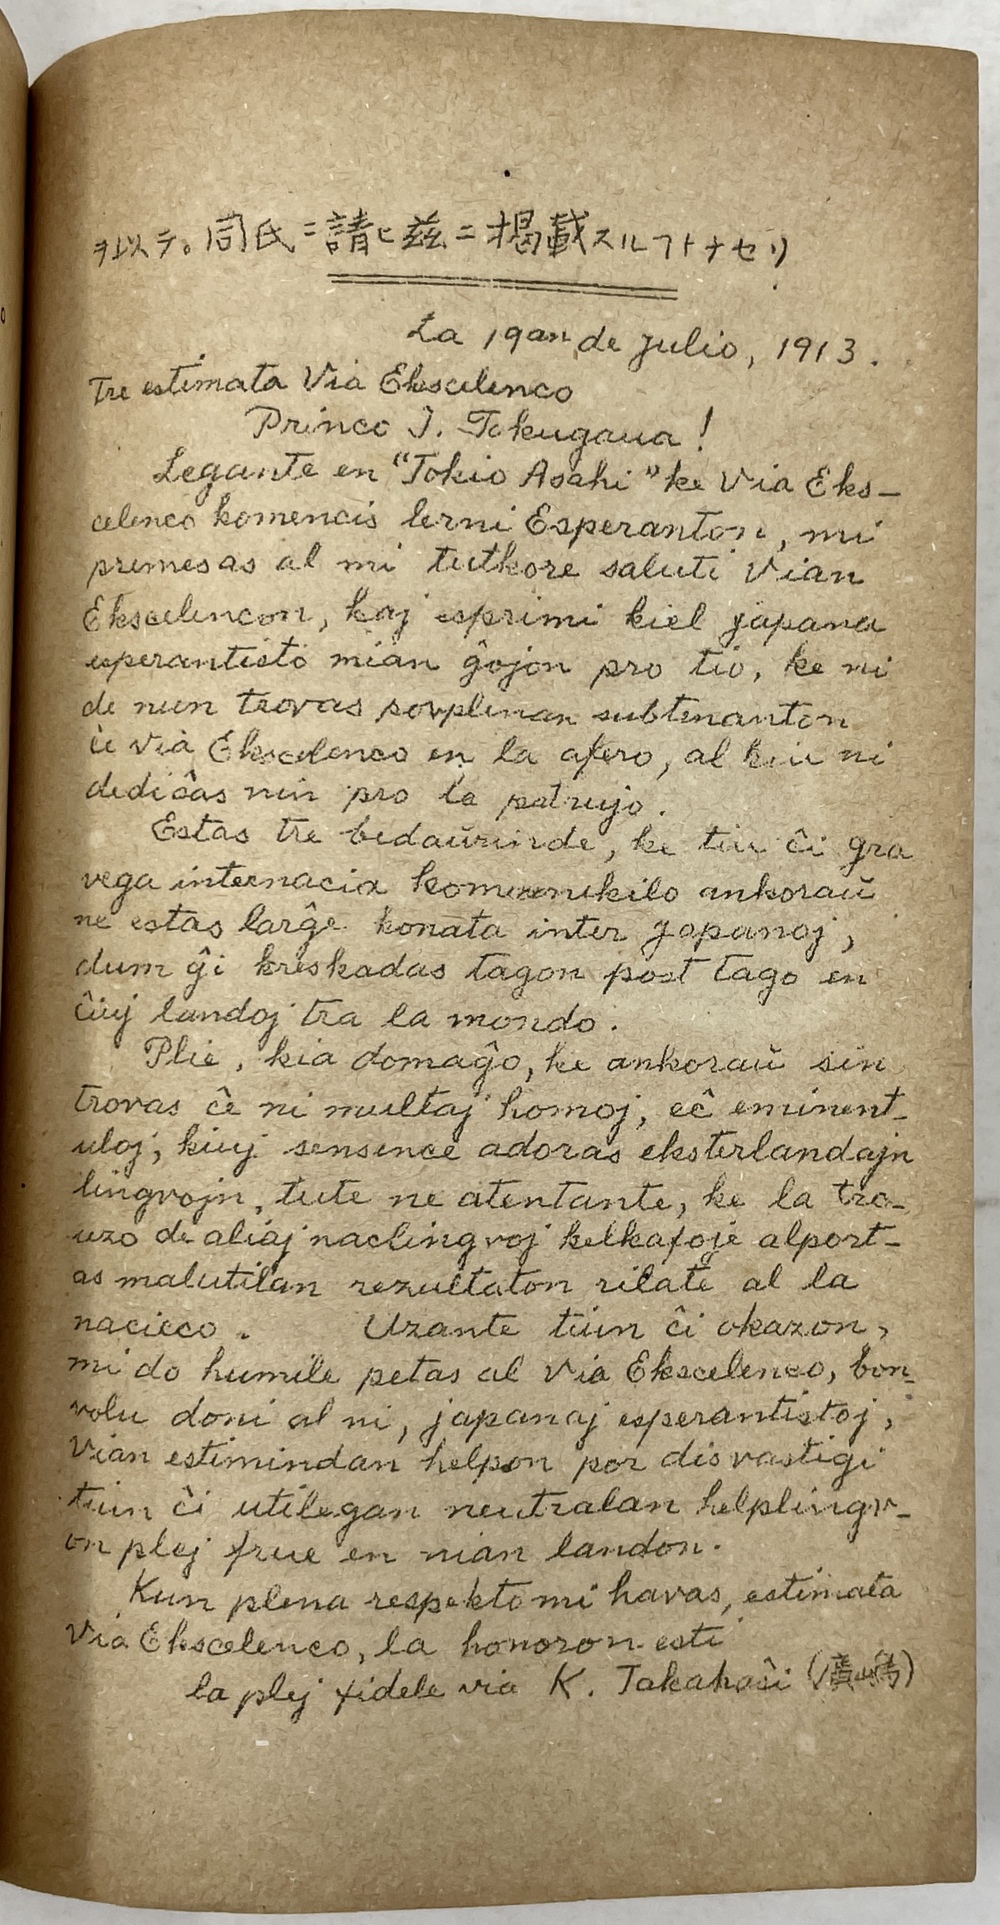 ヲ以テ。同氏ニ請ヒ玆ニ掲載スルヿトナセリ
La 19an de julio, 1913.
Tre estimata Via Ekscelenco
Princo I. Tokugaŭa!
Legante en "Tokio Asahi" ke Via Eks-
celenco komencis lerni Esperanton, mi
premesas al mi tutkore saluti Vian
Ekscelencon, kaj esprimi kiel japana
esperantisto mian ĝojon pro tio, ke ni
de nun trovas povplenan subtenanton
ĉe Via Ekscelenco en la afero, al kiu ni
dediĉas nin pro la patrujo.
Estas tre bedaŭrinde, ke tiu ĉi gra
vega internacia komunikilo ankoraŭ
ne estas larĝe konata inter japanoj,
dum ĝi kreskadas tagon post tago en
ĉiuj landoj tra la mondo.
Plie, kia domaĝo, ke ankoraŭ sin
trovas ĉe ni multaj homoj, eĉ eminent-
uloj, kiuj sensence adoras eksterlandajn
lingvojn, tute ne atentante, ke la tro-
uzo de aliaj naclingvoj kelkafoje alport-
as malutilan rezultaton rilate al la
nacieco. Uzante tiun ĉi okazon,
mi do humile petas al Via Ekscelenco, bon-
volu doni al ni, japanaj esperantistoj,
Vian estimindan helpon por disvastigi
tiun ĉi utilegan neutralan helplingv-
on plej frue en nian landon.
Kun plena respekto mi havas, estimata
Via Ekscelenco, la honoron esti
la plej fidele via K. Takahaŝi